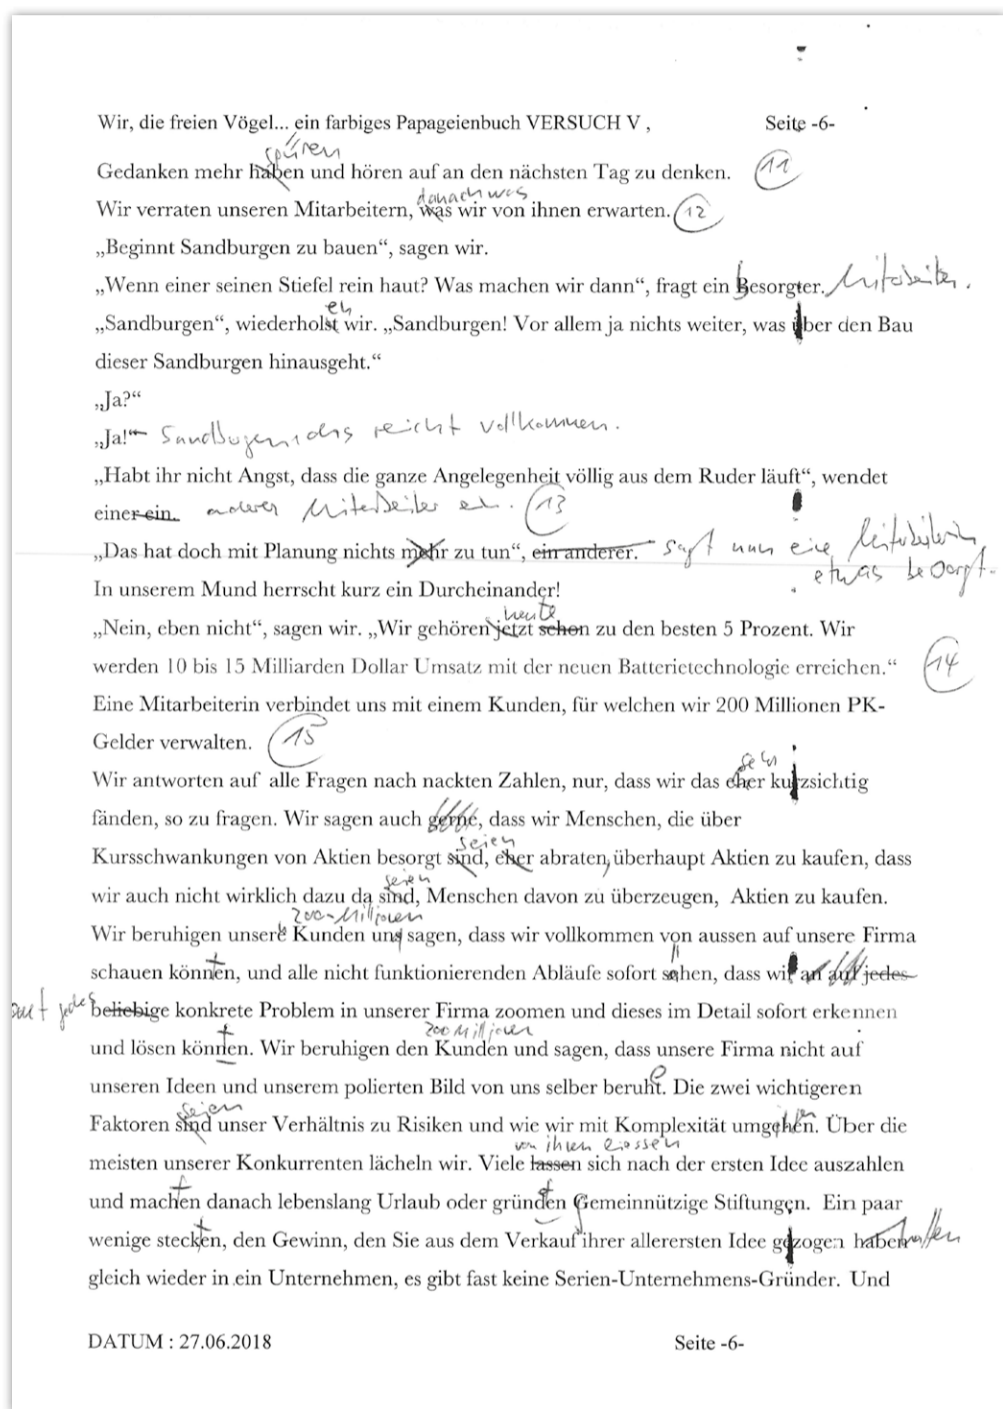 Wir, die freien Vögel... ein farbiges Papageienbuch VERSUCH V , Seite -6-
spüren
Gedanken mehr haben und hören auf an den nächsten Tag zu denken. 11
danach was
Wir verraten unseren Mitarbeitern, was wir von ihnen erwarten. 12
„Beginnt Sandburgen zu bauen“, sagen wir.
„Wenn einer seinen Stiefel rein haut? Was machen wir dann“, fragt ein Besorgter. Mitarbeiter.
en
„Sandburgen“, wiederholst wir. „Sandburgen! Vor allem ja nichts weiter, was über den Bau
dieser Sandburgen hinausgeht.“
„Ja?“
„Ja!“ Sandburgen, das reicht vollkommen.
„Habt ihr nicht Angst, dass die ganze Angelegenheit völlig aus dem Ruder läuft“, wendet
einer ein. anderer Mitarbeiter ein. 13
„Das hat doch mit Planung nichts mehr zu tun“, ein anderer. sagt nun eine Mitarbeiterin
etwas besorgt.
In unserem Mund herrscht kurz ein Durcheinander!
heute
„Nein, eben nicht“, sagen wir. „Wir gehören jetzt schon zu den besten 5 Prozent. Wir
werden 10 bis 15 Milliarden Dollar Umsatz mit der neuen Batterietechnologie erreichen.“ 14
Eine Mitarbeiterin verbindet uns mit einem Kunden, für welchen wir 200 Millionen PK-
Gelder verwalten. 15
sehr
Wir antworten auf alle Fragen nach nackten Zahlen, nur, dass wir das eher kurzsichtig
fänden, so zu fragen. Wir sagen auch gerne, dass wir Menschen, die über
seien
Kursschwankungen von Aktien besorgt sind, eher abraten, überhaupt Aktien zu kaufen, dass
seien
wir auch nicht wirklich dazu da sind, Menschen davon zu überzeugen, Aktien zu kaufen.
200-Millionen
Wir beruhigen unsere Kunden und sagen, dass wir vollkommen von aussen auf unsere Firma
schauen könnten, und alle nicht funktionierenden Abläufe sofort sähen, dass wir an auf jedes
auf jedes beliebige konkrete Problem in unserer Firma zoomen und dieses im Detail sofort erkennen
200 Millionen
und lösen könnten. Wir beruhigen den Kunden und sagen, dass unsere Firma nicht auf
unseren Ideen und unserem polierten Bild von uns selber beruht. Die zwei wichtigeren
seien
Faktoren sind unser Verhältnis zu Risiken und wie wir mit Komplexität umgehen. Über die
von ihnen liessen
meisten unserer Konkurrenten lächeln wir. Viele lassen sich nach der ersten Idee auszahlen
und machten danach lebenslang Urlaub oder gründten Gemeinnützige Stiftungen. Ein paar
wenige steckten, den Gewinn, den Sie aus dem Verkauf ihrer allerersten Idee gezogen haben hatten
gleich wieder in ein Unternehmen, es gibt fast keine Serien-Unternehmens-Gründer. Und
DATUM : 27.06.2018 Seite -6-